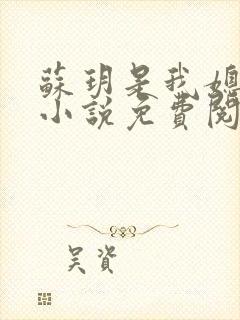 蘇玥是我媳
小說免費閱
吴資